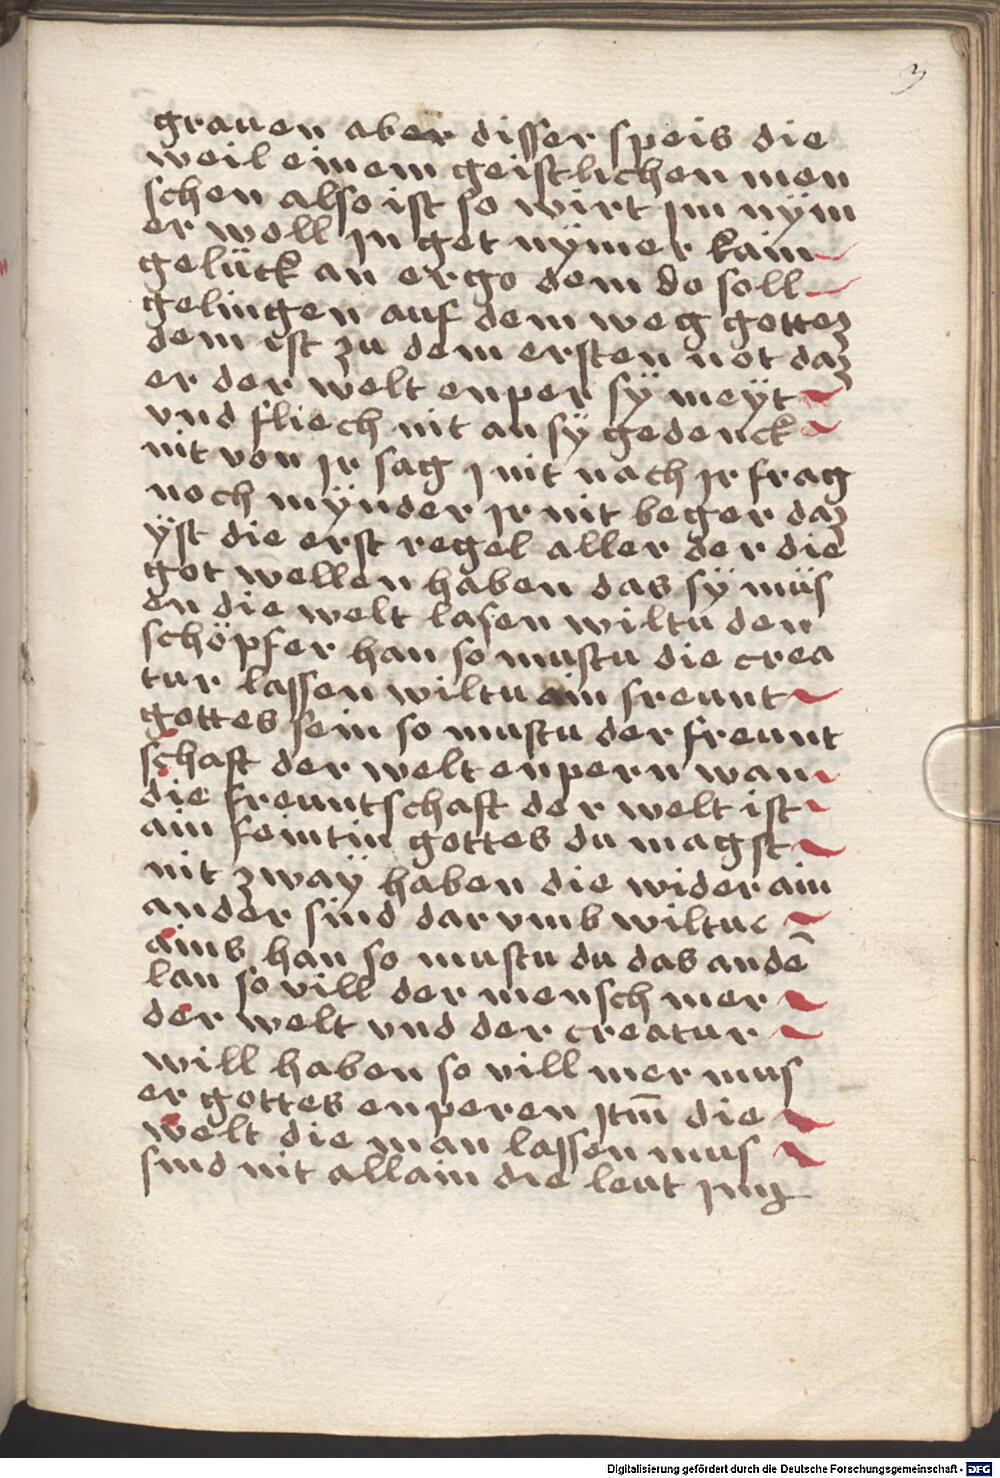 3
grauen aber disser speis die
weil einem geistlichen men
schen also ist so wirt im nÿm
er woll in got nÿmer kain
gelück an ergo dem do soll
gelingen auf dem weg gottez
dem ist zu dem ersten not daz
er der welt enper sÿ meÿt
vnd fliech nit an sÿ gedenck
nit von ir sag i nit nach ir frag
noch mÿnder ir nit beger daz
ÿst die erst regel aller der die
got wellen haben das sÿ müs
en die welt lasen wiltu den
schöpfer han so mustu die crea
tur lassen wiltu ain freunt
gottes sein so mustu der freunt
schaft der welt enpern wan
die freuntschaft der welt ist
ain feintin gottes du magst
nit zwaÿ haben die wider ain
ander sind dar vmb wiltu
ains han so mustu du das andē
lan so vill der mensch mer
der welt vnd der creatur
will haben so vill mer mus
er gottes enperen itm̄ die
welt die man lassen mus
sind nit allain die leut
Digitalisierung gefördert durch die Deutsche Forschungsgemeinschaft - DFG